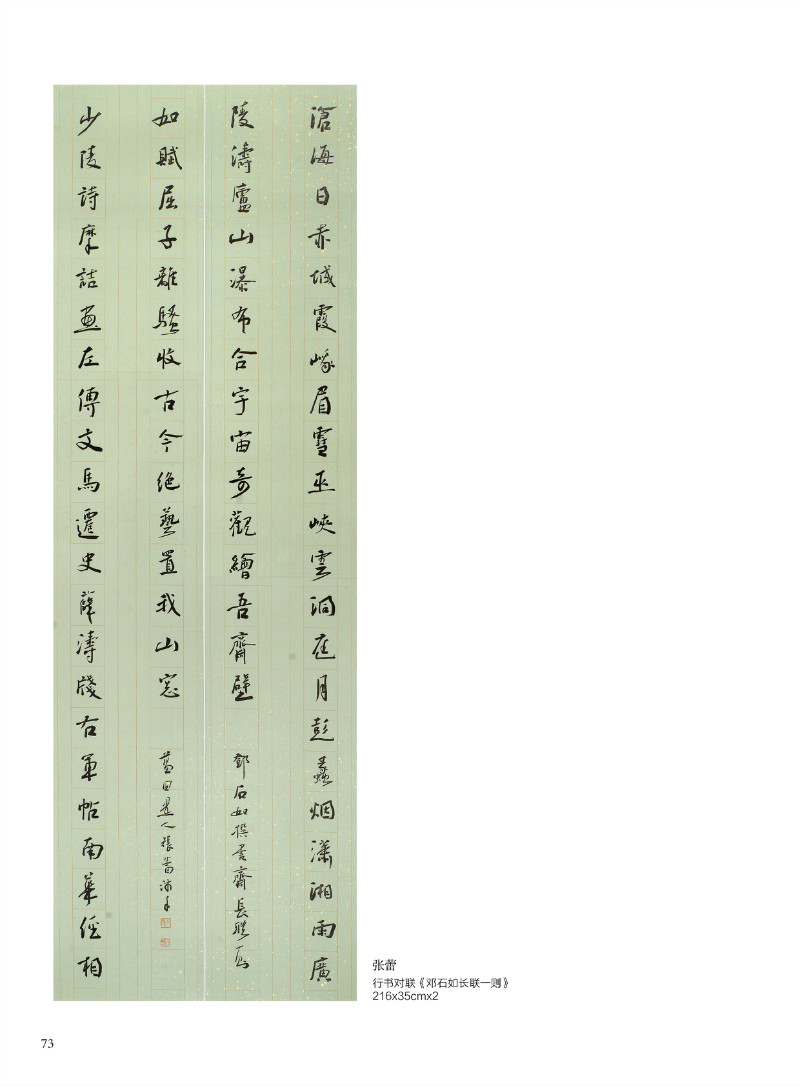 滄海日赤城霞峨眉雪巫峽雲洞庭月彭蠡烟瀟湘雨廣
陵濤廬山瀑布合宇宙奇觀繪吾齋壁
鄧石如撰齋長聯
少陵詩摩詰畫左傳文馬遷史薛濤牋右軍帖南華經相
如賦屈子離騷收古今絶藝置我山窓
人張蕾
张蕾
行书对联《邓石如长联一则》
216x35cmx2
73